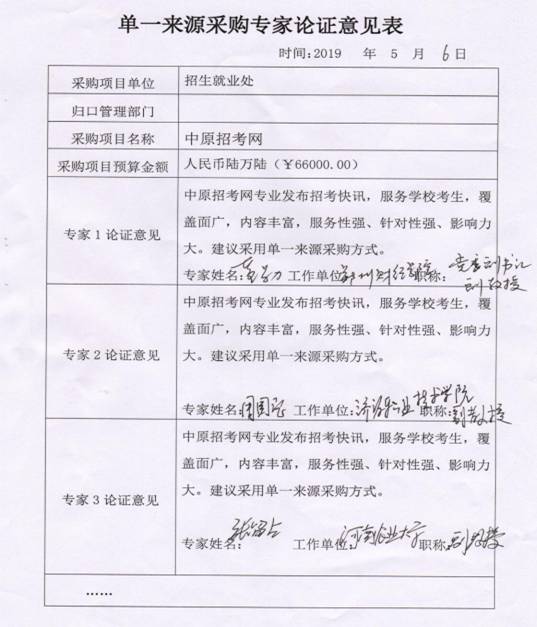 单一来源采购专家论证意见表
时间:2019 年 5 月 6日
采购项目单位 招生就业处
归口管理部门
采购项目名称 中原招考网
采购项目预算金额 人民币陆万陆（￥66000.00）
专家1论证意见
中原招考网专业发布招考快讯，服务学校考生，覆
盖面广，内容丰富，服务性强、针对性强、影响力
大。建议采用单一来源采购方式。
专家姓名: 工作单位:郑州财经学院 职称: 党委副书记
副教授
专家2论证意见
中原招考网专业发布招考快讯，服务学校考生，覆
盖面广，内容丰富，服务性强、针对性强、影响力
大。建议采用单一来源采购方式。
专家姓名: 工作单位:济源职业技术学院 职称:副教授
专家3论证意见
中原招考网专业发布招考快讯，服务学校考生，覆
盖面广，内容丰富，服务性强、针对性强、影响力
大。建议采用单一来源采购方式。
专家姓名: 工作单位:河南农业大学 职称:副教授
……